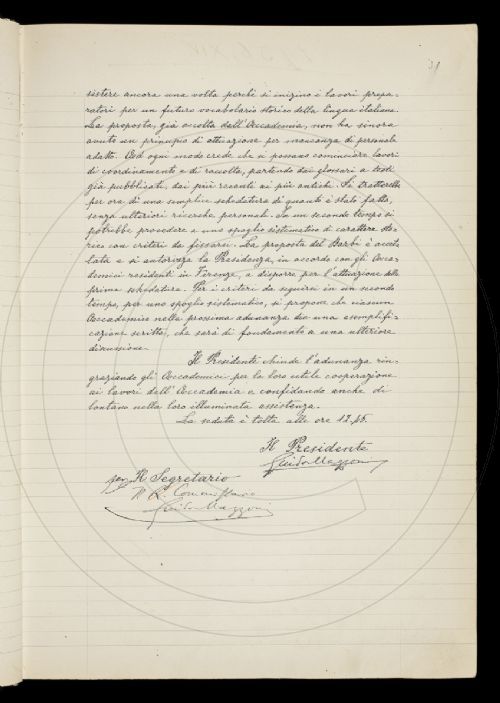 39
sistere ancora una volta perchè si inizino i lavori prepa-
ratori per un futuro vocabolario storico della lingua italiana.
La proposta, già accolta dall'Accademia, non ha sinora
avuto un principio di attuazione per mancanza di personale
adatto. Ad ogni modo crede che si possano cominciare lavori
di coordinamento e di raccolta, partendo dai glossari a testi
già pubblicati, dai più recenti ai più antichi. Si tratterebbe
per ora di una semplice schedatura di quanto è stato fatto,
senza ulteriori ricerche personali. In un secondo tempo si
potrebbe procedere a uno spoglio sistematico di carattere sto-
rico con criteri da fissarsi. La proposta del Barbi è accet-
tata e si autorizza la Presidenza, in accordo con gli Acca-
demici residenti in Firenze, a disporre per l'attuazione della
prima schedatura. Per i criteri da seguirsi in un secondo
tempo, per uno spoglio sistematico, si propone che ciascun
Accademico nella prossima adunanza dia una esemplifi-
cazione scritta, che sarà di fondamento a una ulteriore
discussione.
Il Presidente chiude l'adunanza rin-
graziando gli Accademici per la loro utile cooperazione
ai lavori dell'Accademia e confidando anche di
lontano nella loro illuminata assistenza.
La seduta è tolta alle ore 12,45.
Il Presidente
Guido Mazzoni
per Il Segretario
Il R. Commissario
Guido Mazzoni